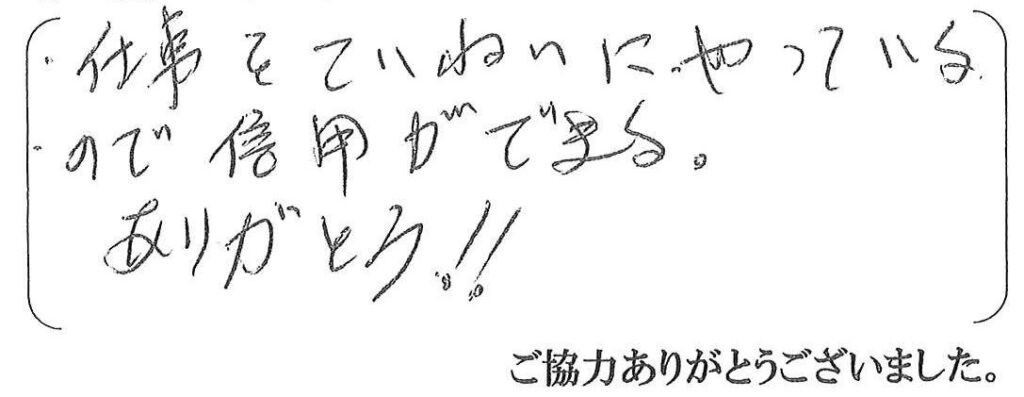 ・仕事をていねいにやっている
・ので信用ができる。
ありがとう!!
ご協力ありがとうございました。